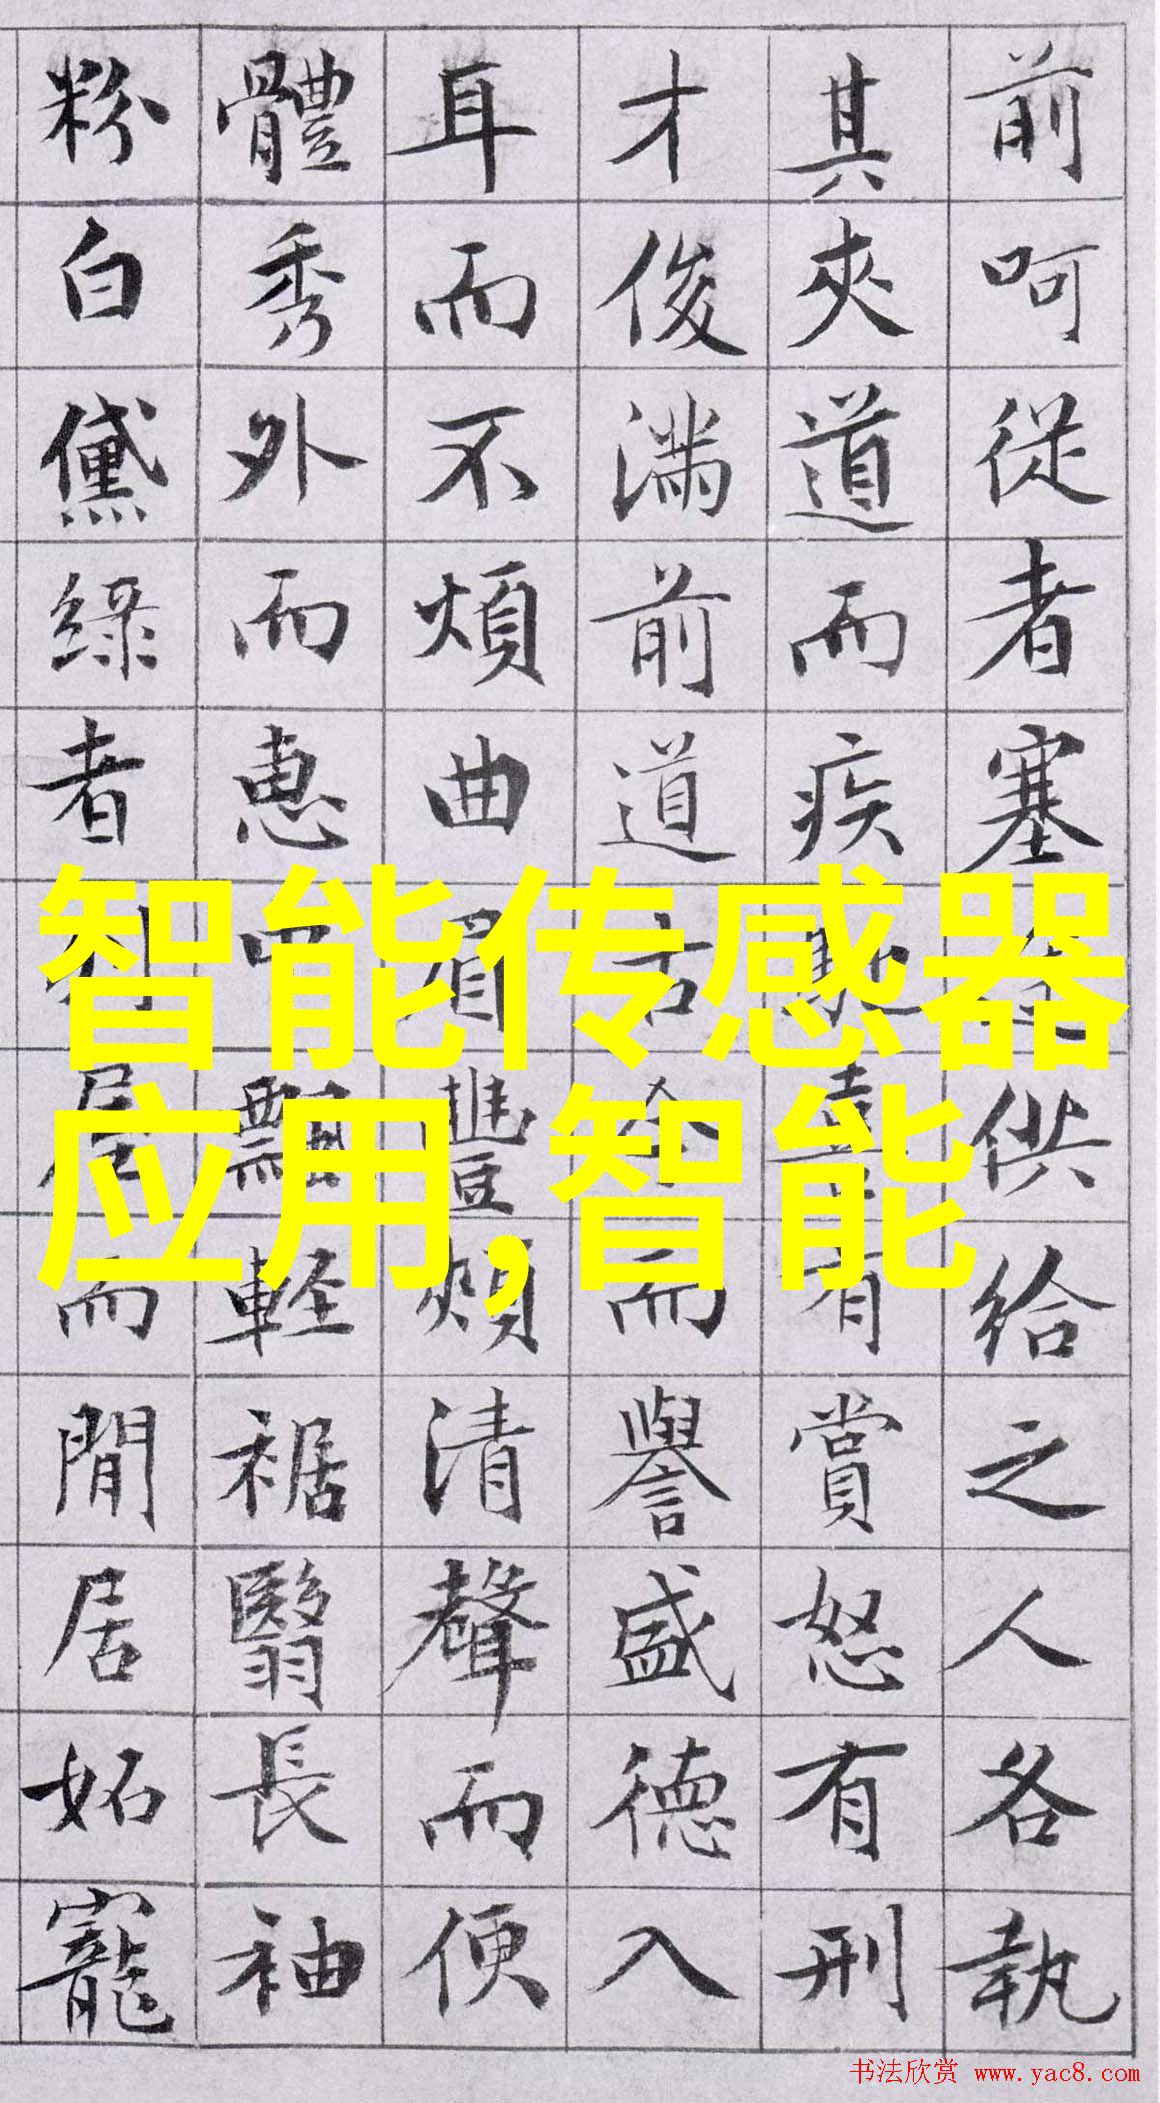 前呵從者塞途供給之人各執
其夾道而疾馳喜有賞怒有刑
才俊滿前道古今而譽盛德入
耳而不煩曲眉豐頰清聲而便
體秀外而惠中飄輕裾翳長袖
粉白黛綠者列屋而閒居妬寵
智能传感器
应用,智能
书法欣赏 www.yac8.com